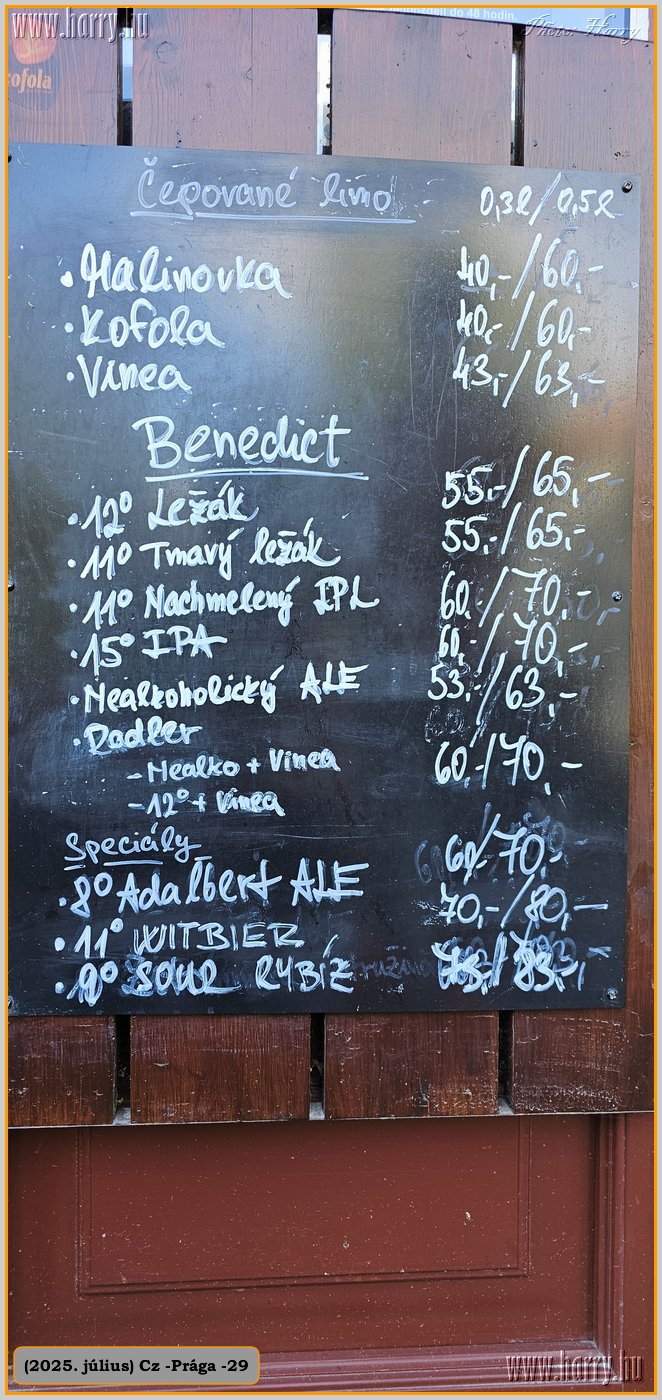 www.harry.hu
do 48 hodin.
Photo: Harry
kofola
Čepované limo 0,3l/0,5l
• Malinovka 40,-/60,-
• Kofola 40,-/60,-
• Vinea 43,-/63,-
Benedict
• 12° Ležák 55,-/65,-
• 11° Tmavý ležák 55,-/65,-
• 11° Nachmelený IPL 60,-/70,-
• 15° IPA 60,-/70,-
• Nealkoholický ALE 53,-/63,-
• Radler
- Nealko + Vinea 60,-/70,-
- 12° + Vinea
Speciály
• 8° Adalbert ALE 60/70,-
• 11° WITBIER 70,-/80,-
• 9° SOUR RYBÍZ 73,-/83,-
(2025. július) Cz -Prága -29
www.harry.hu